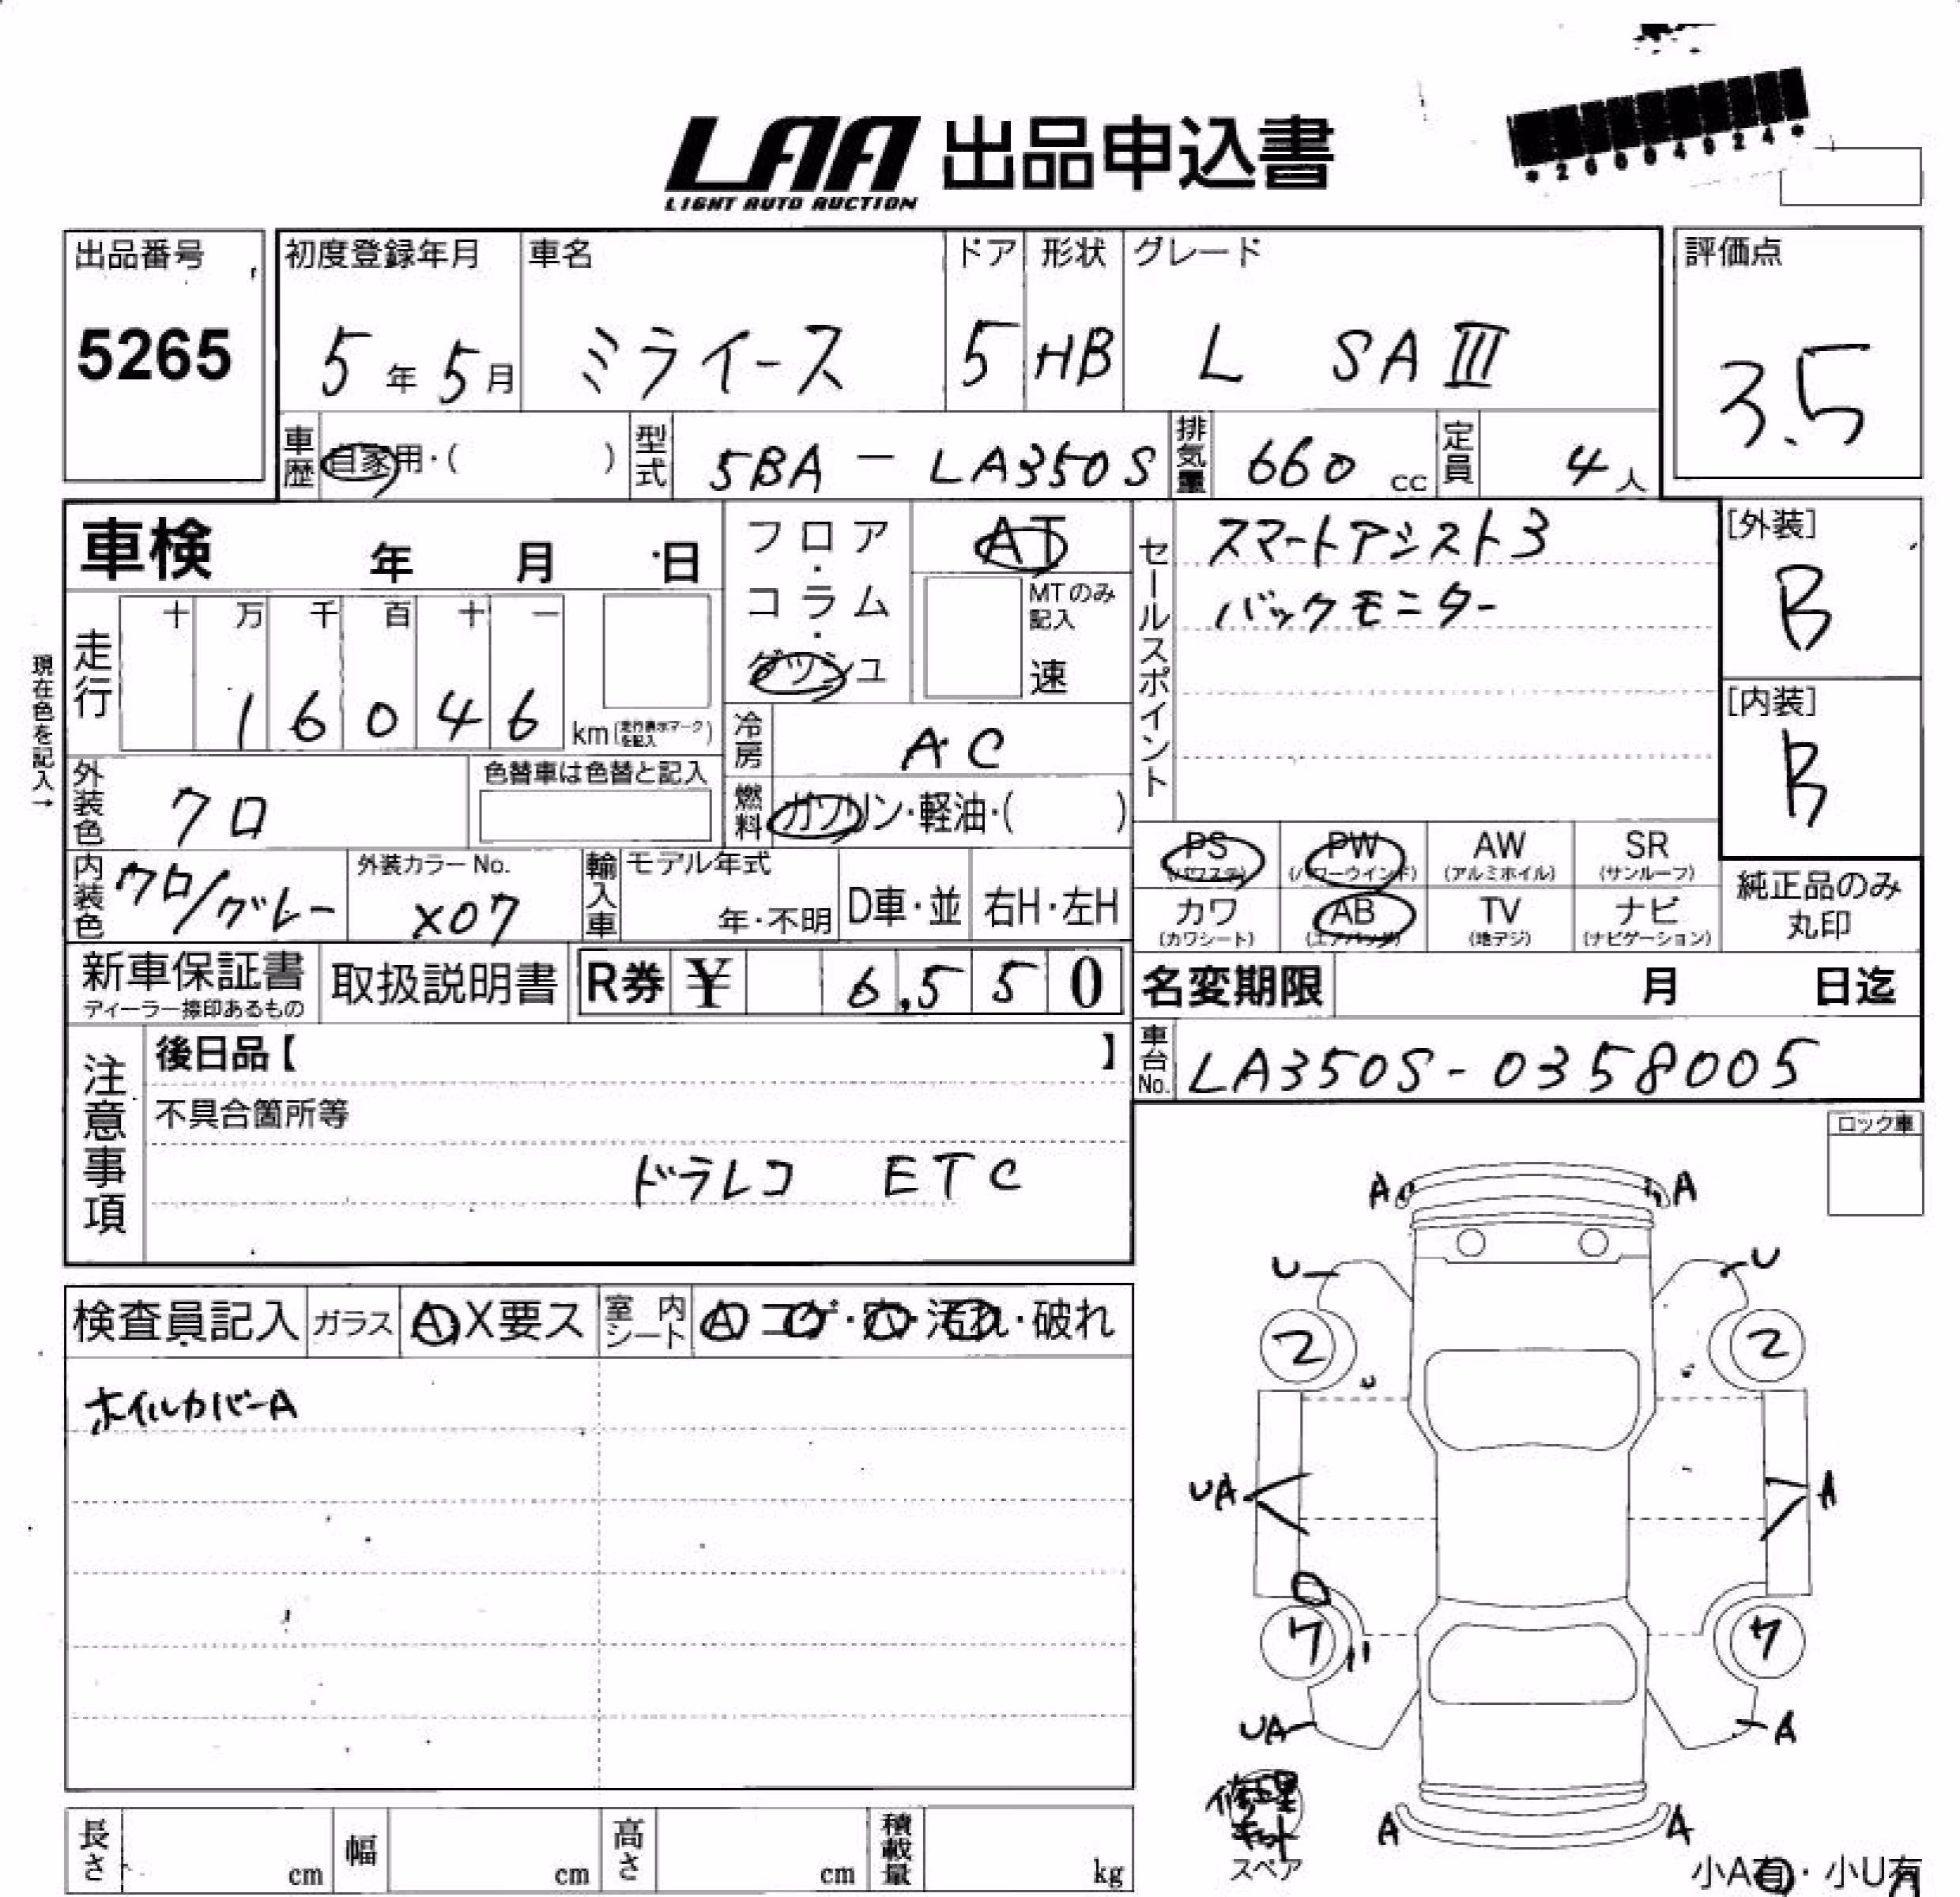 LAA 出品申込書
LIGHT AUTO AUCTION
*26004924*
出品番号
5265
初度登録年月
5年5月
車名
ミライース
ドア
5
形状
HB
グレード
L SAⅢ
評価点
3.5
車歴
自家用・( )
型式
5BA-LA350S
排気量
660 cc
定員
4人
車検 年 月 日
フロア・コラム・ダッシュ
AT
MTのみ記入
速
セールスポイント
スマートアシスト3
バックモニター
[外装]
B
[内装]
B
現在色を記入→
走行
十 万 千 百 十 一
16046 km (走行表示マークを記入)
冷房
AC
外装色
クロ
色替車は色替と記入
燃料
ガソリン・軽油・( )
内装色
クロ/グレー
外装カラーNo.
X07
輸入車
モデル年式
年・不明
D車・並
右H・左H
PS (パワステ)
PW (パワーウインド)
AW (アルミホイル)
SR (サンルーフ)
カワ (カワシート)
AB (エアバッグ)
TV (地デジ)
ナビ (ナビゲーション)
純正品のみ丸印
新車保証書
ディーラー捺印あるもの
取扱説明書
R券 ¥ 6,550
名変期限 月 日迄
車台No.
LA350S-0358005
注意事項
後日品【 】
不具合箇所等
ドラレコ ETC
ロック車
検査員記入
ガラス
A X要ス
室内シート
A コゲ・穴・汚れ・破れ
ホイルカバーA
A A
U U
2 2
UA A
7 7
UA A
修理キット
スペア
A A
小A有・小U有
長さ cm
幅 cm
高さ cm
積載量 kg